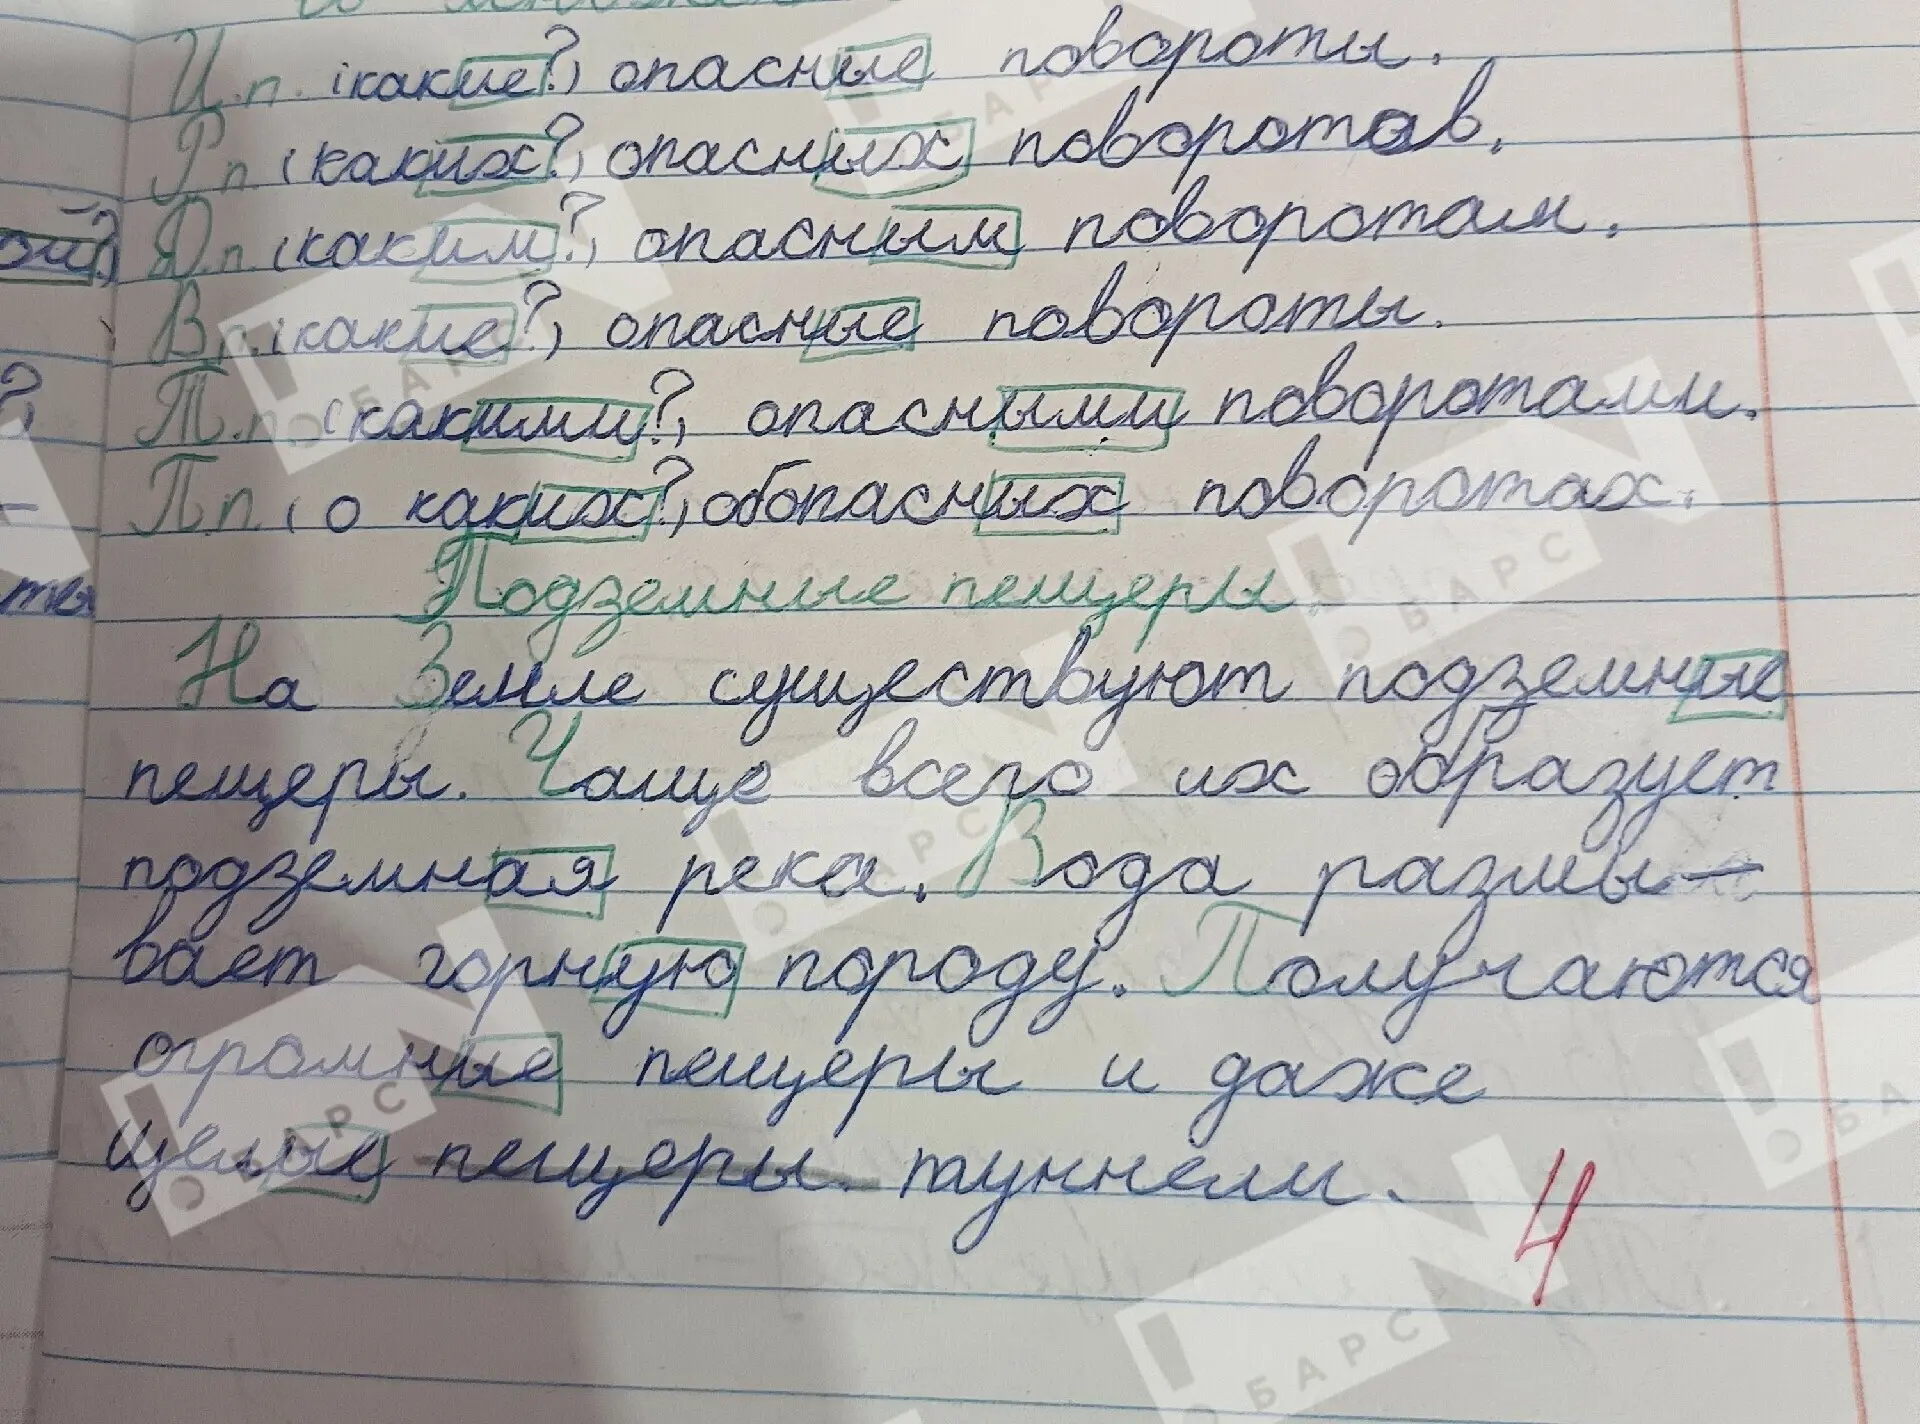 И.п. (какие?) опасные повороты.
Р.п. (каких?) опасных поворотов.
ой?) Д.п. (каким?) опасным поворотам.
В.п. (какие?) опасные повороты.
?) Т.п. (какими?) опасными поворотами.
П.п. (о каких?) обопасных поворотах.
Подземные пещеры.
На Земле существуют подземные
пещеры. Чаще всего их образует
подземная река. Вода размы-
вает горную породу. Получаются
огромные пещеры и даже
целые пещеры туннели.
4